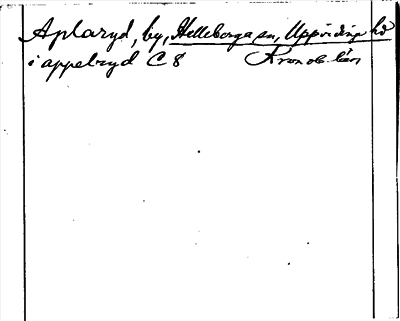 Aplaryd, by, Helleberga sn, Uppvidinge hd
i appelryd C 8 Kronob. län